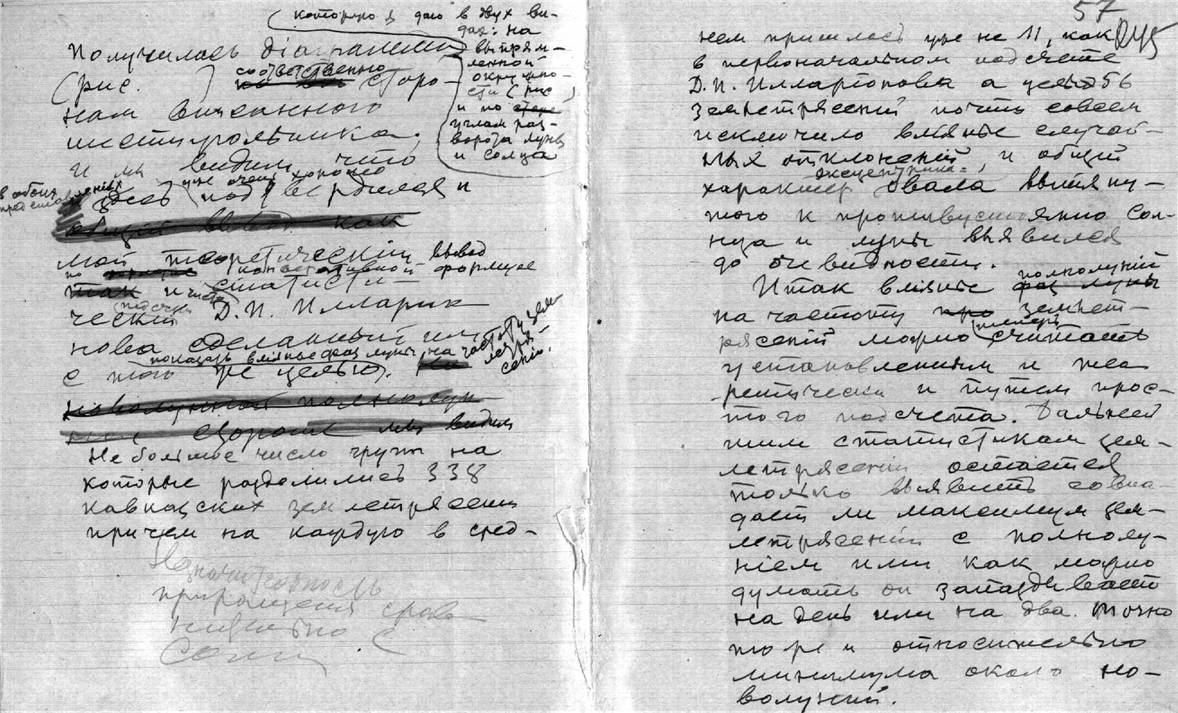 которую я даю в двух ви-
дах: на
выпрям-
ленной
окружно-
сти (рис )
и по
углам раз-
ворота луны
и солнца
Получилась діаграмма
(рис. ) соответственно сторо-
нам вписанного
шестиугольника,
и мы видим, что
в обоих
представленіях
здесь уже очень хорошо
подтвердился и
общий вывод как
мой теоретический вывод
по конъюнктивной формуле
так и чисто статисти-
ческій подсчет Д. П. Илларио-
нова сделанный им
с тою же целью показать вліяніе фаз луны, на частоту земле-
трясений.
мы видим
Небольшое число групп на
которые разделились 338
кавказских землетрясений
причем на каждую в сред-
Незначительность
приращения срав-
нительно с
57
245
нем пришлось уже не 11, как
в первоначальном подсчете
Д. П. Илларіонова а целых 56
землетрясений почти совсем
исключило вліяніе случай-
ных отклонений, и общий
характер эксцентрика-
овала вытяну-
того к противустоянию Сол-
нца и луны выявился
до очевидности.
Итак вліяніе полнолуній
фаз луны
на частоту про землет-
рясений можно теперь считать
установленным и тео-
ретически и путем прос-
того подсчета. Дальней
шим статистикам зем-
летрясений остается
только выявить совпа-
дает ли максимум зем-
летрясений с полнолу-
ніем или как можно
думать он запаздывает
на день или на два. Точно
то же и относительно
минимума около но-
волуний.